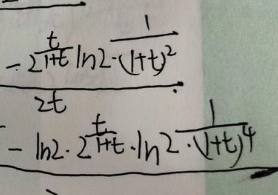 - 2^{\frac{t}{1+t}} ln2 · \frac{1}{(1+t)^2}
2t
- ln2 · 2^{\frac{t}{1+t}} · ln2 · \frac{1}{(1+t)^4}